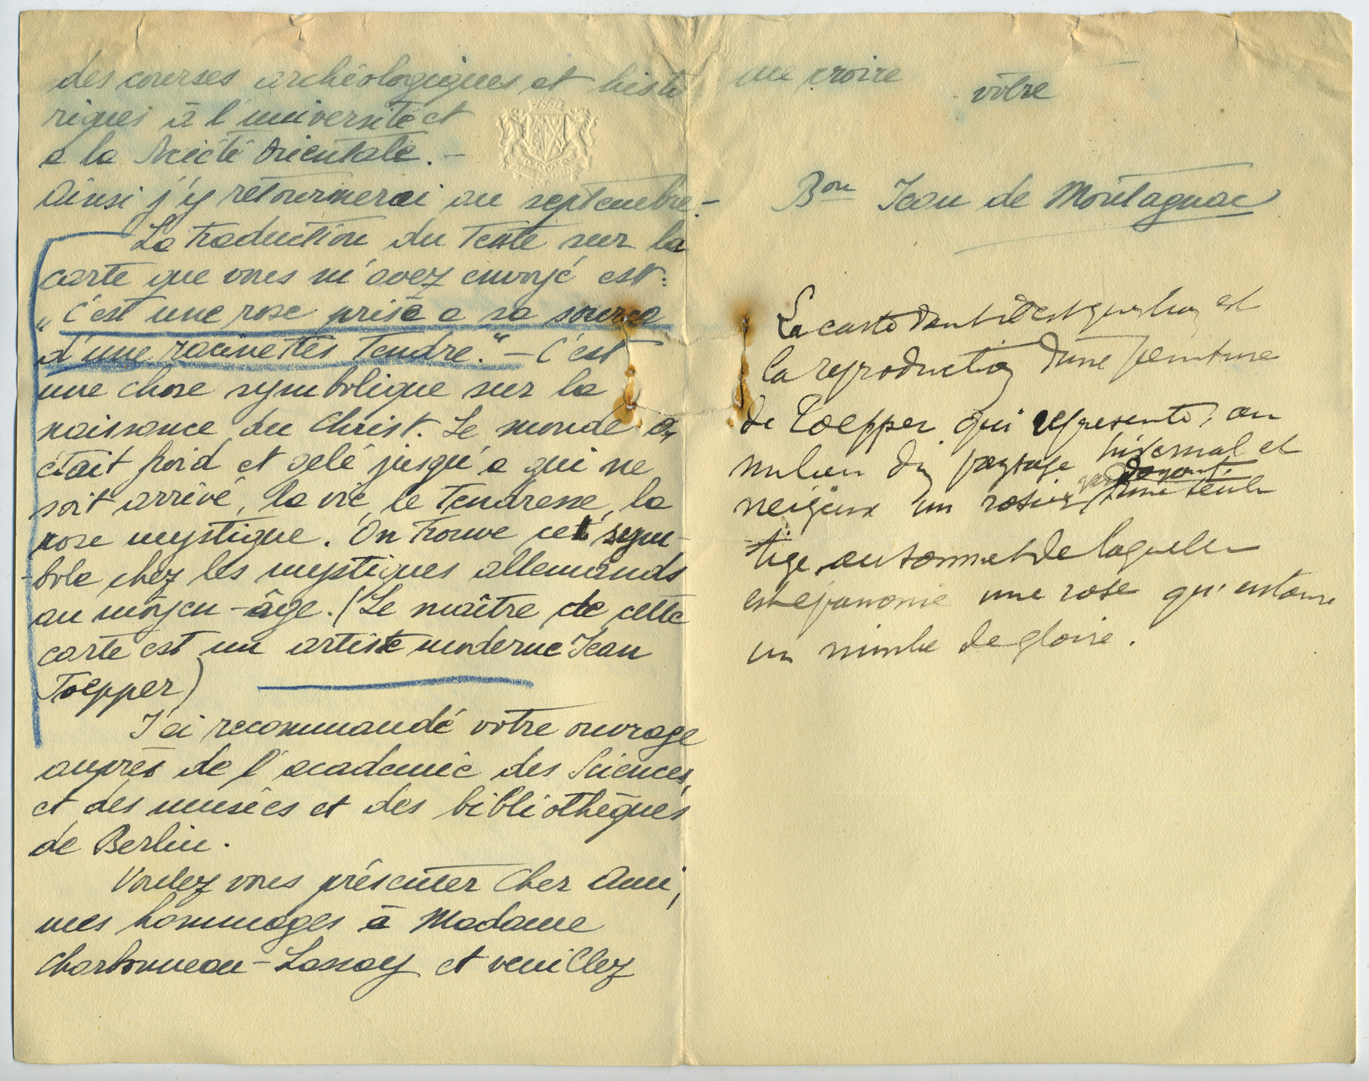 des courses archéologiques et histo
riques à l'université et
a la Société Orientale. –
Ainsi j'y retournerai au septembre. –
La traduction du texte sur la
carte que vous m'avez envoyé est:
„C'est une rose prise a sa source
d'une racine très tendre." – C'est
une chose symbolique sur la
naissance du Christ. Le monde
était froid et gelé jusqu'a qui ne
soit arrivé, la vie, le tendresse, la
rose mystique. On trouve cet sym-
bole chez les mystiques allemands
au moyen-âge. (Le maître de cette
carte est un artiste moderne Jean
Toepper)
J'ai recommandé votre ouvrage
auprès de l'academie des Sciences,
et des musées et des bibliothèques
de Berlin.
Voulez vous présenter Cher Ami,
mes hommages à Madame
Charbonneau-Lassay et veuillez
me croire
vôtre
Bon Jean de Montagnac
La carte dont il est question est
la reproduction d'une peinture
de Toepper qui représente, au
milieu du paysage hivernal et
neigeux un rosier d'une seule
tige, au sommet de laquelle
est épanouie une rose qu'entoure
un nimbe de gloire.